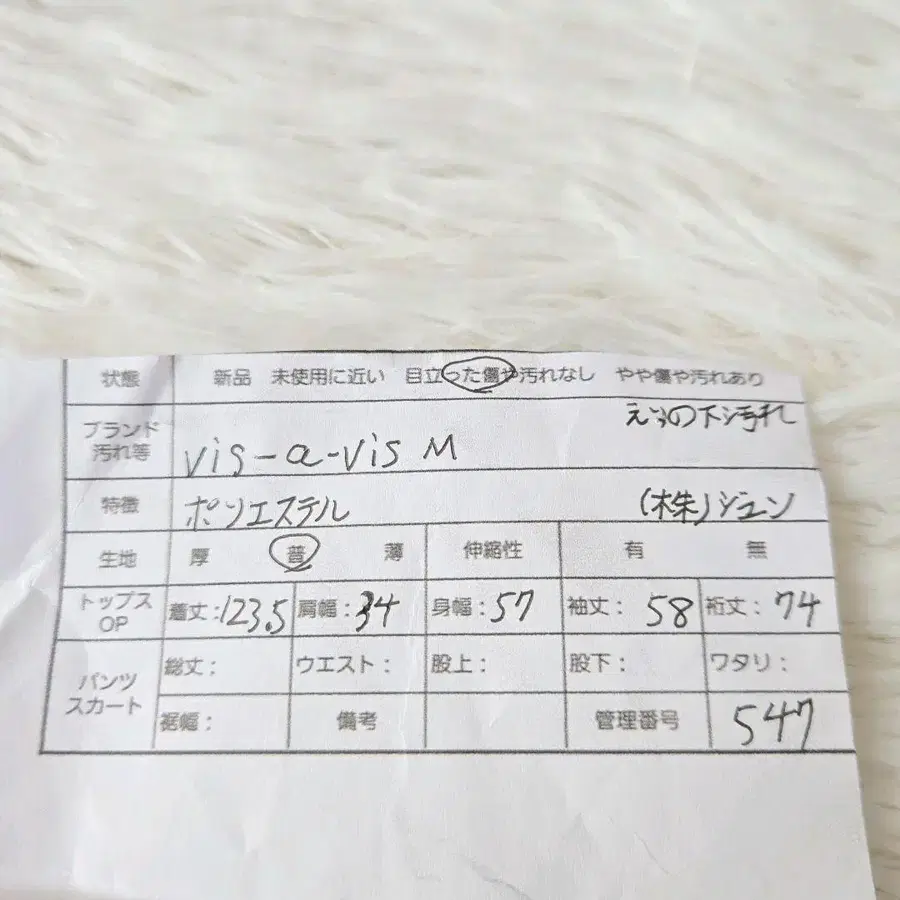 状態 新品 未使用に近い 目立った傷や汚れなし やや傷や汚れあり
ブランド 汚れ等 vis-a-vis M えりの下汚れ
特徴 ポリエステル (株)ジュン
生地 厚 普 薄 伸縮性 有 無
トップス OP 着丈:123.5 肩幅:34 身幅:57 袖丈:58 裄丈:74
パンツ スカート 総丈: ウエスト: 股上: 股下: ワタリ:
裾幅: 備考 管理番号 547